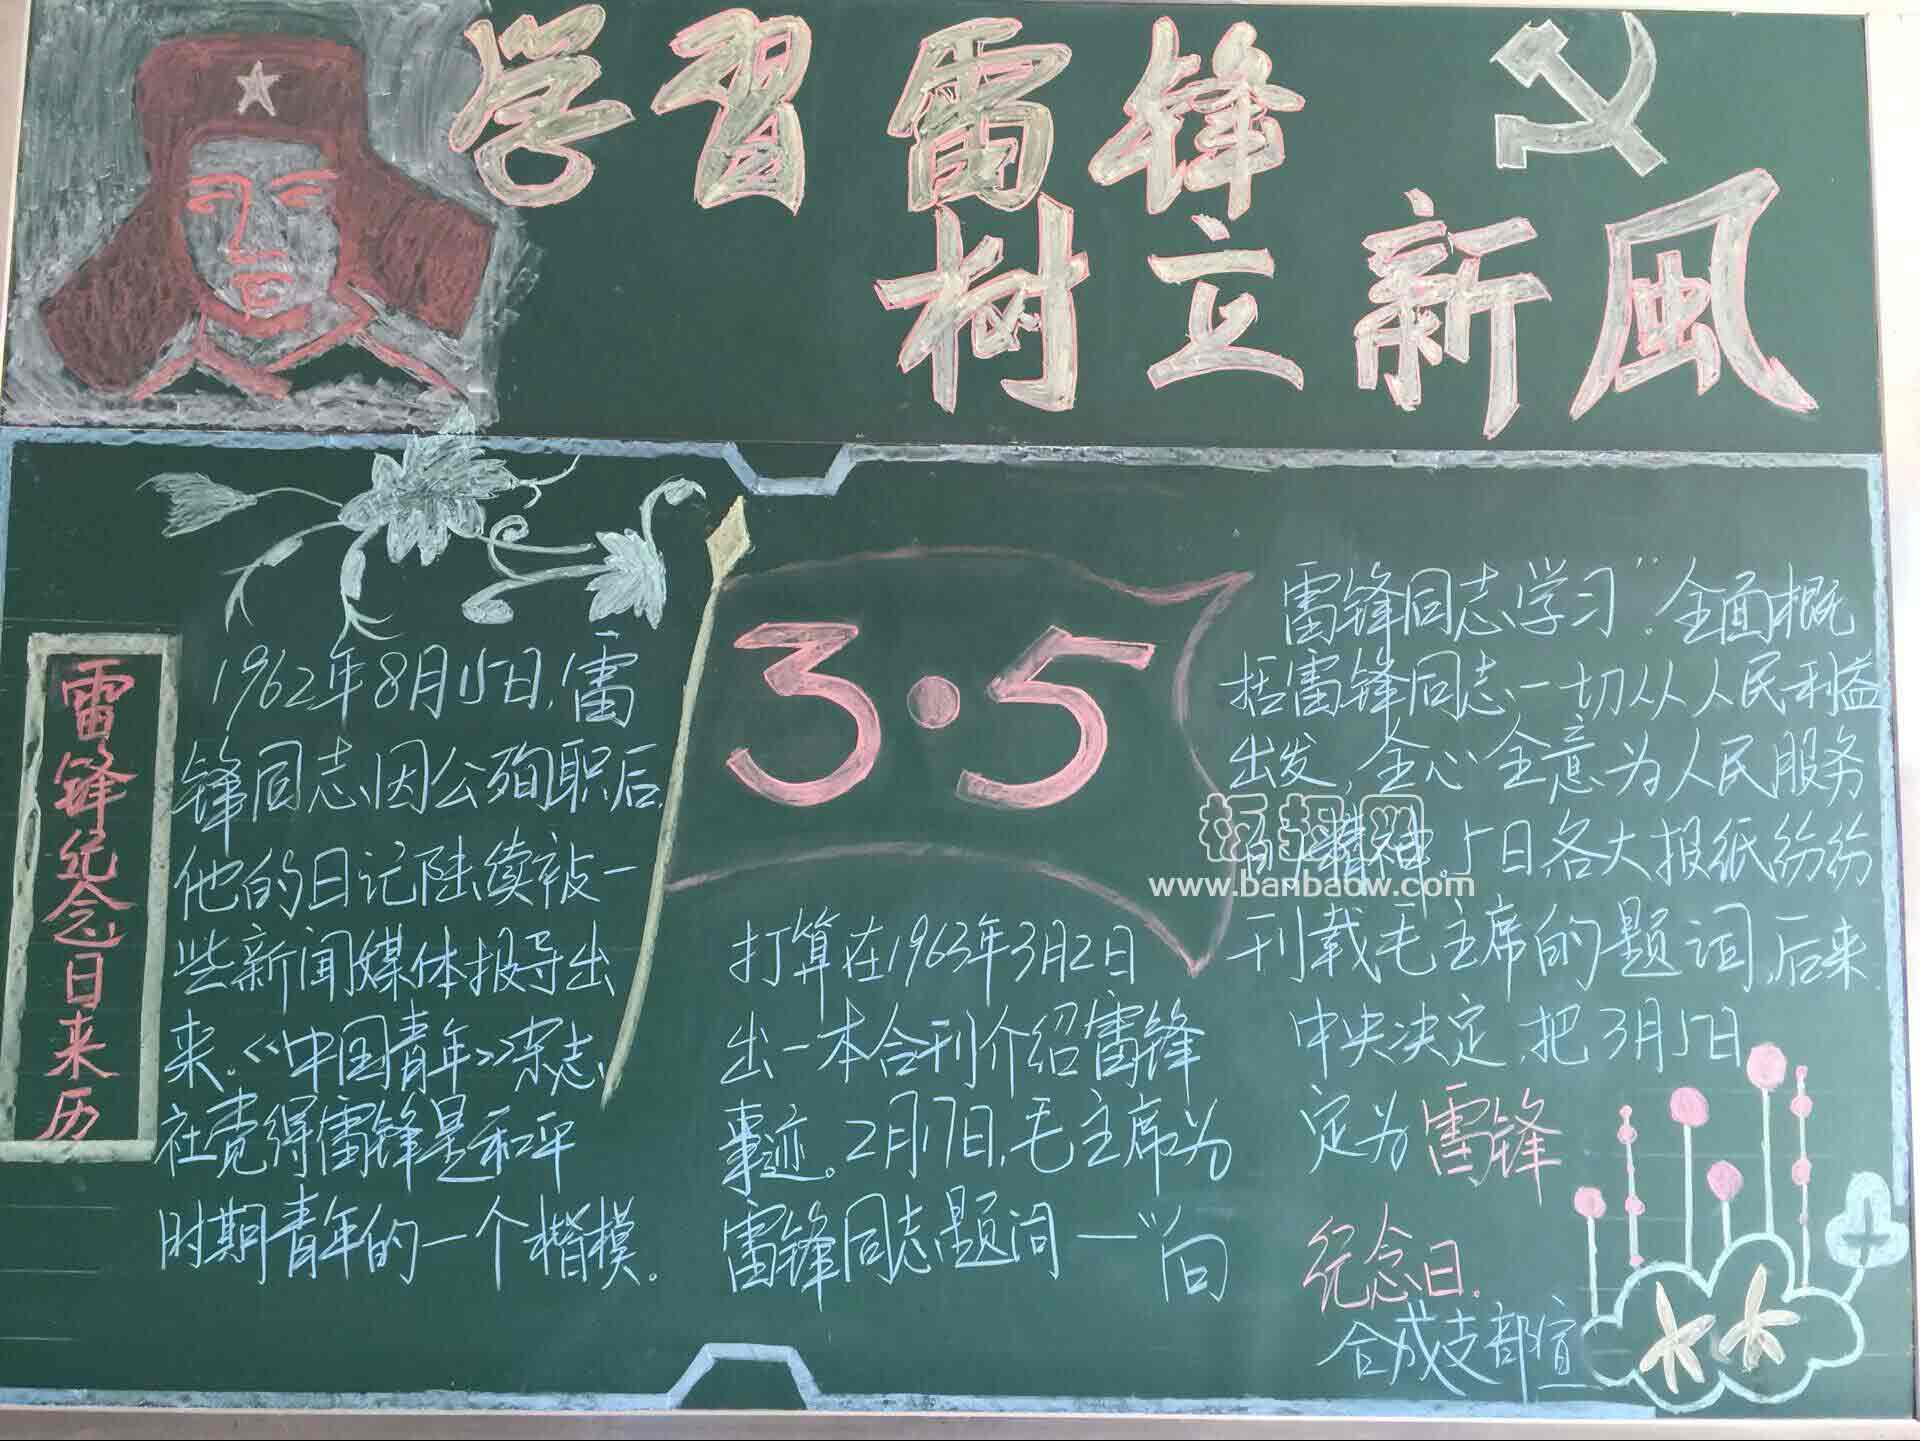 学习雷锋
树立新风
雷锋纪念日来历
1962年8月15日,雷
锋同志因公殉职后,
他的日记陆续被一
些新闻媒体报导出
来.《中国青年》杂志
社觉得雷锋是和平
时期青年的一个楷模.
3·5
打算在1963年3月2日
出一本合刊介绍雷锋
事迹。2月17日,毛主席为
雷锋同志题词一“向
雷锋同志学习”.全面概
括雷锋同志一切从人民利益
出发,全心全意为人民服务
的精神.5日各大报纸纷纷
刊载毛主席的题词,后来.
中央决定,把3月5日
定为雷锋
纪念日.
合成支部宣
板报网
www.banbaow.com